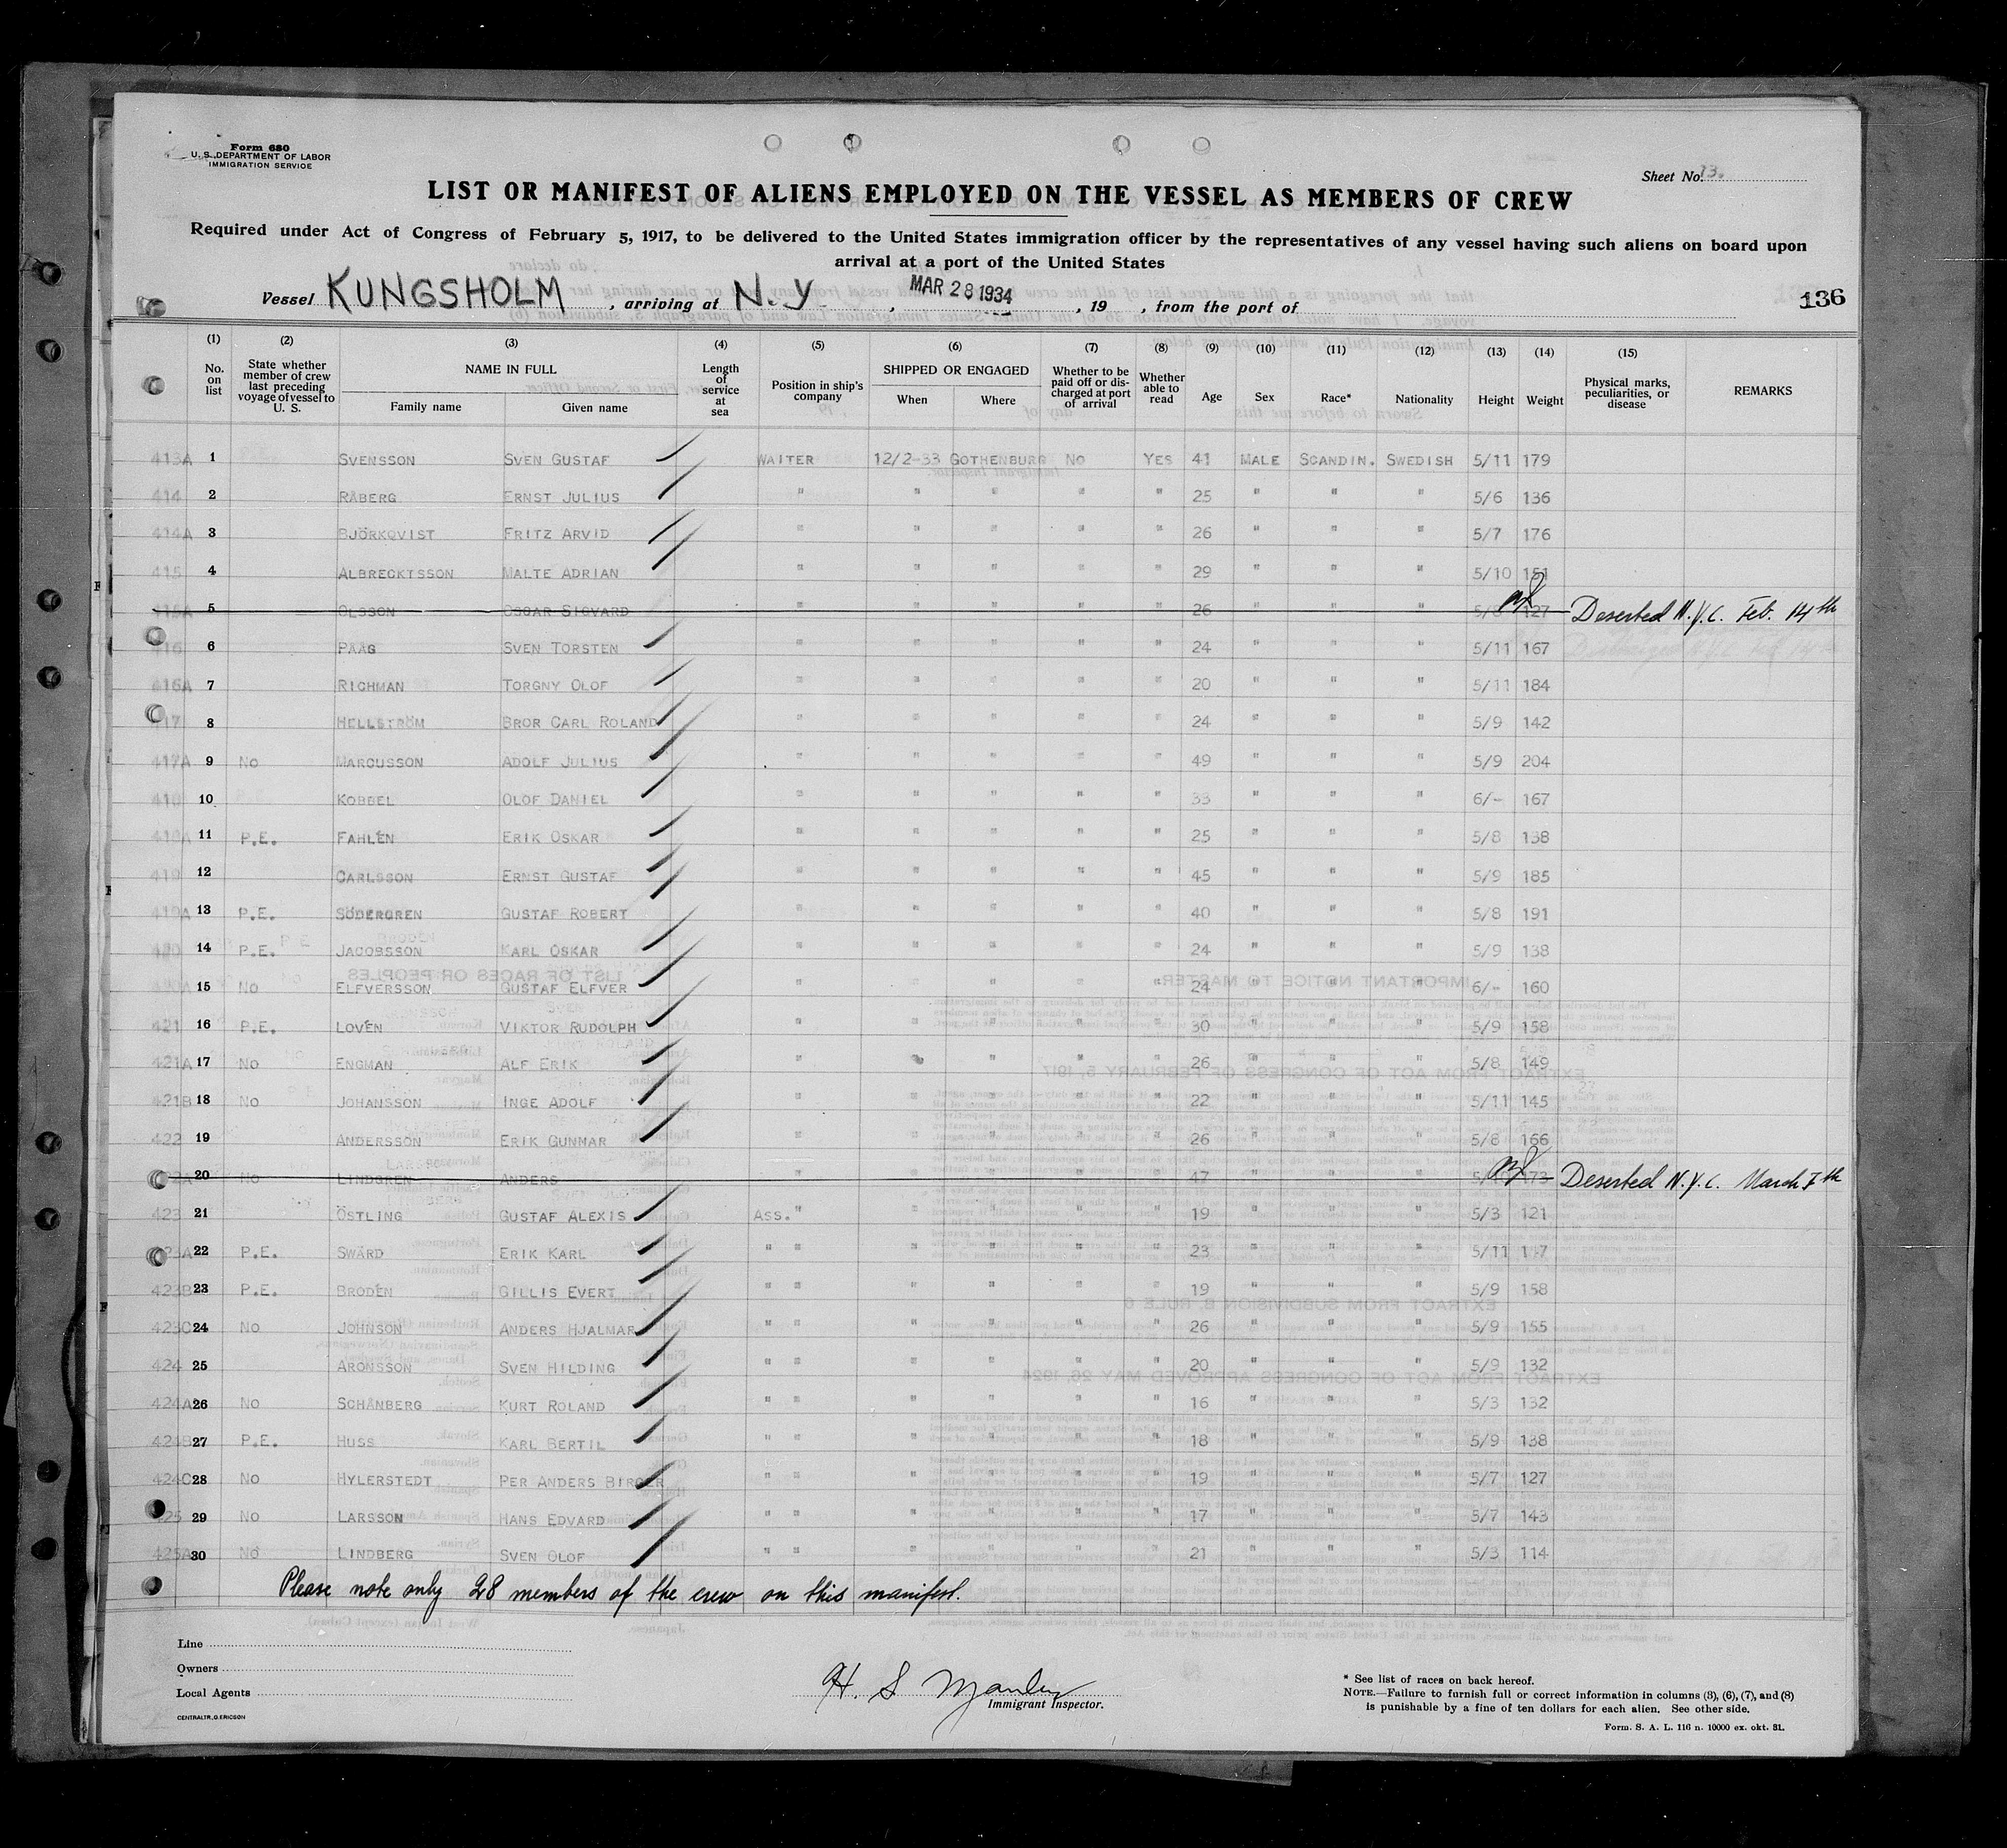 Form 680
U. S. DEPARTMENT OF LABOR
IMMIGRATION SERVICE
Sheet No. 13.
LIST OR MANIFEST OF ALIENS EMPLOYED ON THE VESSEL AS MEMBERS OF CREW
Required under Act of Congress of February 5, 1917, to be delivered to the United States immigration officer by the representatives of any vessel having such aliens on board upon
arrival at a port of the United States
Vessel KUNGSHOLM, arriving at N.Y., MAR 28 1934, 19 , from the port of 136
(1) (2) (3) (4) (5) (6) (7) (8) (9) (10) (11) (12) (13) (14) (15)
No. on list State whether member of crew last preceding voyage of vessel to U. S. NAME IN FULL Family name Given name Length of service at sea Position in ship's company SHIPPED OR ENGAGED When Where Whether to be paid off or discharged at port of arrival Whether able to read Age Sex Race* Nationality Height Weight Physical marks, peculiarities, or disease REMARKS
413A 1 SVENSSON SVEN GUSTAF WAITER 12/2-33 GOTHENBURG NO YES 41 MALE SCANDIN. SWEDISH 5/11 179
414 2 RÅBERG ERNST JULIUS " " " " " 25 " " " 5/6 136
414A 3 BJÖRKQVIST FRITZ ARVID " " " " " 26 " " " 5/7 176
415 4 ALBRECKTSSON MALTE ADRIAN " " " " " 29 " " " 5/10 151
415A 5 OLSSON OSCAR SIGVARD " " " " " 26 " " " 5/8 127 Deserted N.Y.C. Feb. 14th
416 6 PÅÅG SVEN TORSTEN " " " " " 24 " " " 5/11 167
416A 7 RICHMAN TORGNY OLOF " " " " " 20 " " " 5/11 184
417 8 HELLSTRÖM BROR CARL ROLAND " " " " " 24 " " " 5/9 142
417A 9 NO MARCUSSON ADOLF JULIUS " " " " " 49 " " " 5/9 204
418 10 KOBBEL OLOF DANIEL " " " " " 33 " " " 6/- 167
418A 11 P.E. FAHLÉN ERIK OSKAR " " " " " 25 " " " 5/8 138
419 12 CARLSSON ERNST GUSTAF " " " " " 45 " " " 5/9 185
419A 13 P.E. SÖDERGREN GUSTAF ROBERT " " " " " 40 " " " 5/8 191
420 14 P.E. JACOBSSON KARL OSKAR " " " " " 24 " " " 5/9 138
420A 15 NO ELFVERSSON GUSTAF ELFVER " " " " " 24 " " " 6/- 160
421 16 P.E. LOVÉN VIKTOR RUDOLPH " " " " " 30 " " " 5/9 158
421A 17 NO ENGMAN ALF ERIK " " " " " 26 " " " 5/8 149
421B 18 NO JOHANSSON INGE ADOLF " " " " " 22 " " " 5/11 145
422 19 ANDERSSON ERIK GUNNAR " " " " " 26 " " " 5/8 166
422A 20 NO LINDGREN ANDERS " " " " " 47 " " " 173 Deserted N.Y.C. March 7th
423 21 ÖSTLING GUSTAF ALEXIS ASS. " " " " " 19 " " " 5/3 121
423A 22 P.E. SWÄRD ERIK KARL " " " " " " 23 " " " 5/11
423B 23 P.E. BRODÉN GILLIS EVERT " " " " " " 19 " " " 5/9 158
423C 24 NO JOHNSON ANDERS HJALMAR " " " " " " 26 " " " 5/9 155
424 25 ARONSSON SVEN HILDING " " " " " " 20 " " " 5/9 132
424A 26 NO SCHÅNBERG KURT ROLAND " " " " " " 16 " " " 5/3 132
424B 27 P.E. HUSS KARL BERTIL " " " " " " 18 " " " 5/9 138
424C 28 NO HYLERSTEDT PER ANDERS BIRGER " " " " " " 19 " " " 5/7 127
425 29 NO LARSSON HANS EDVARD " " " " " " 17 " " " 5/7 143
425A 30 NO LINDBERG SVEN OLOF " " " " " " 21 " " " 5/3 114
Please note only 28 members of the crew on this manifest.
Line
Owners
Local Agents
CENTRALTR., G. ERICSON
H. S Manley
Immigrant Inspector.
* See list of races on back hereof.
NOTE.—Failure to furnish full or correct information in columns (3), (6), (7), and (8)
is punishable by a fine of ten dollars for each alien. See other side.
Form. S. A. L. 116 n. 10000 ex. okt. 31.